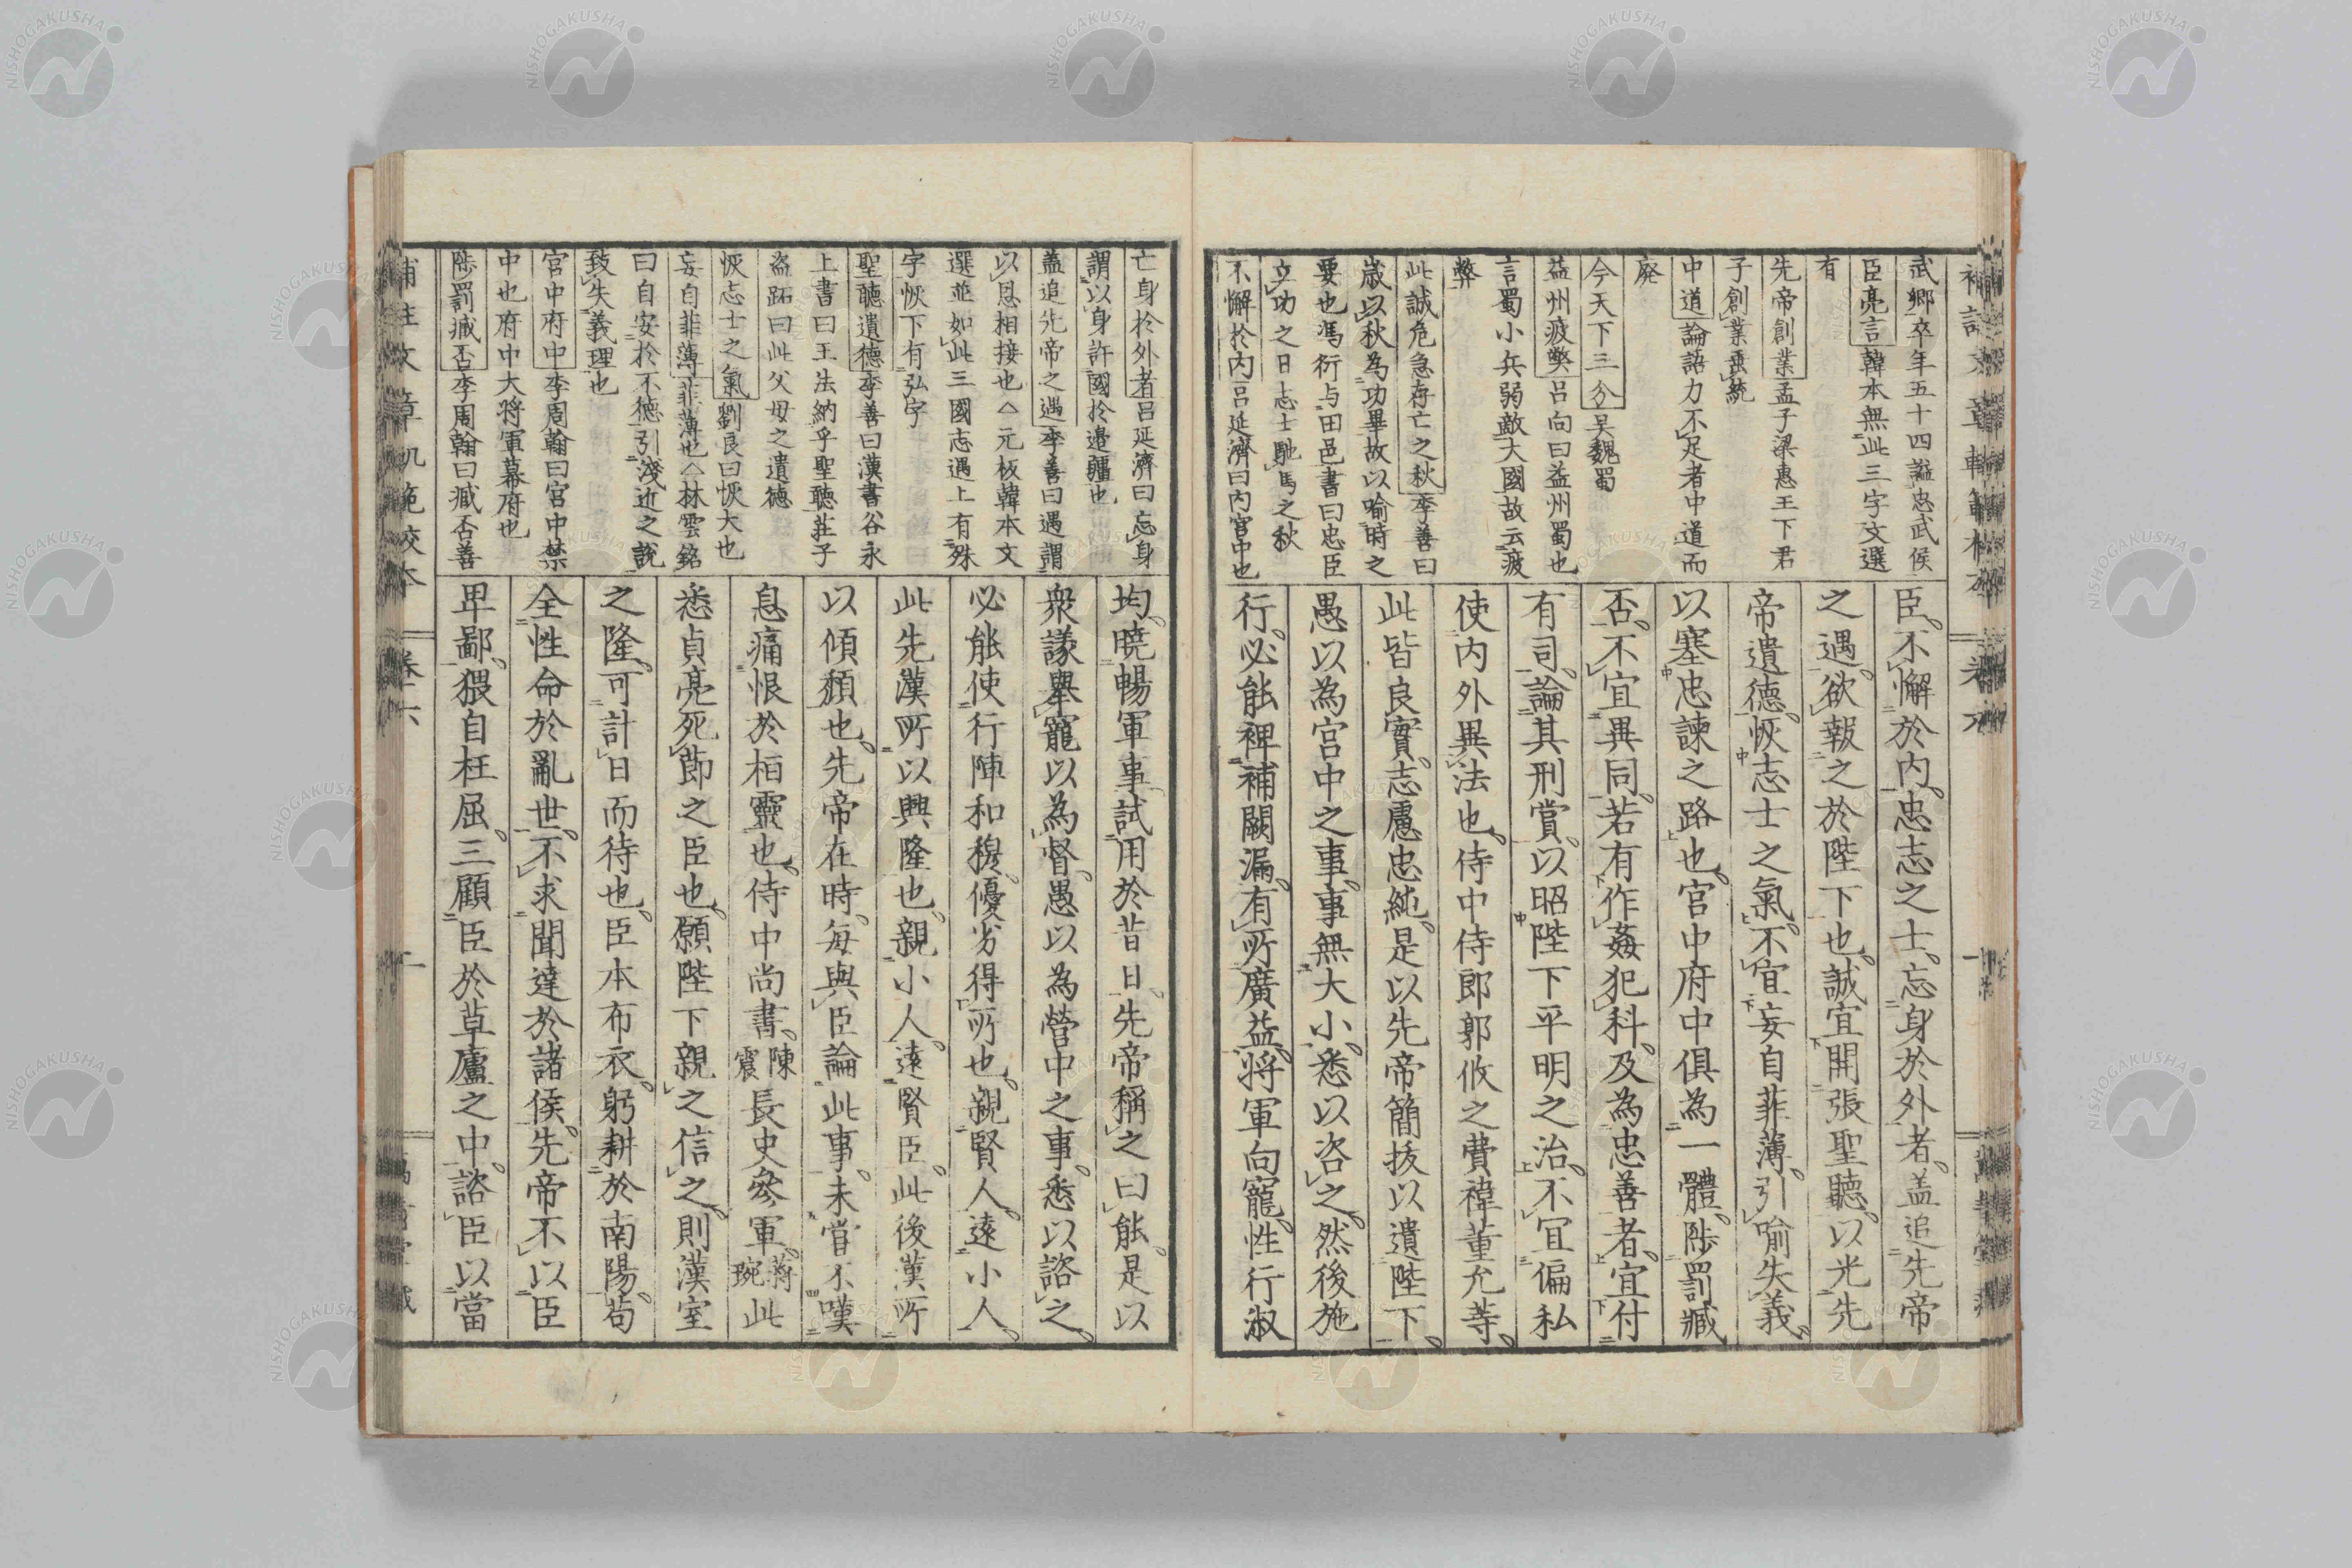 武卿卒年五十四謚忠武侯
臣亮言韓本無此三字文選
有
先帝創業孟子梁惠王下君
子創業垂統
中道論語力不足者中道而
廃
今天下三分吴魏蜀
益州疲弊呂向曰益州蜀也
言蜀小兵弱敵大國故云疲
弊
此誠危急存亡之秋李善曰
歳以秋為功畢故以喻時之
要也馮衍与田邑書曰忠臣
立功之日志士馳馬之秋
不懈於内呂延濟曰内官中也
臣不懈於内忠志之士忘身於外者盖追先帝
之遇欲報之於陛下也誠宜開張聖聽以光先
帝遺德恢志士之氣不宜妄自菲薄引喻失義
以塞忠諫之路也宮中府中俱為一體陟罰臧
否不宜異同若有作姦犯科及為忠善者宜付
有司論其刑賞以昭陛下平明之治不宜偏私
使内外異法也侍中侍郎郭攸之費禕董允等
此皆良實志慮忠純是以先帝簡拔以遺陛下
愚以為宮中之事事無大小悉以咨之然後施
行必能裨補闕漏有所廣益将軍向寵性行淑
亡身於外者呂延濟曰忘身
謂以身許國於邉疆也
盖追先帝之遇李善曰遇謂
以恩相接也△元板韓本文
選並如此三國志遇上有殊
字恢下有弘字
聖聽遺德李善曰漢書谷永
上書曰王法納乎聖聽莊子
盗跖曰此父母之遺德
恢志士之氣劉良曰恢大也
妄自菲薄菲薄也△林雲銘
曰自安於不德引淺近之說
致失義理也
宮中府中李周翰曰宮中禁
中也府中大将軍幕府也
陟罰臧否李周翰曰臧否善
均曉暢軍事試用於昔日先帝稱之曰能是以
衆議舉寵以為督愚以為營中之事悉以諮之
必能使行陣和穆優劣得所也親賢人遠小人
此先漢所以興隆也親小人遠賢臣此後漢所
以傾頽也先帝在時每與臣論此事未嘗不嘆
息痛恨於桓靈也侍中尚書陳震長史參軍蔣琬此
悉貞亮死節之臣也願陛下親之信之則漢室
之隆可計日而待也臣本布衣躬耕於南陽苟
全性命於亂世不求聞達於諸侯先帝不以臣
卑鄙猥自枉屈三顧臣於草廬之中諮臣以當
補註文章軌範校本 卷六